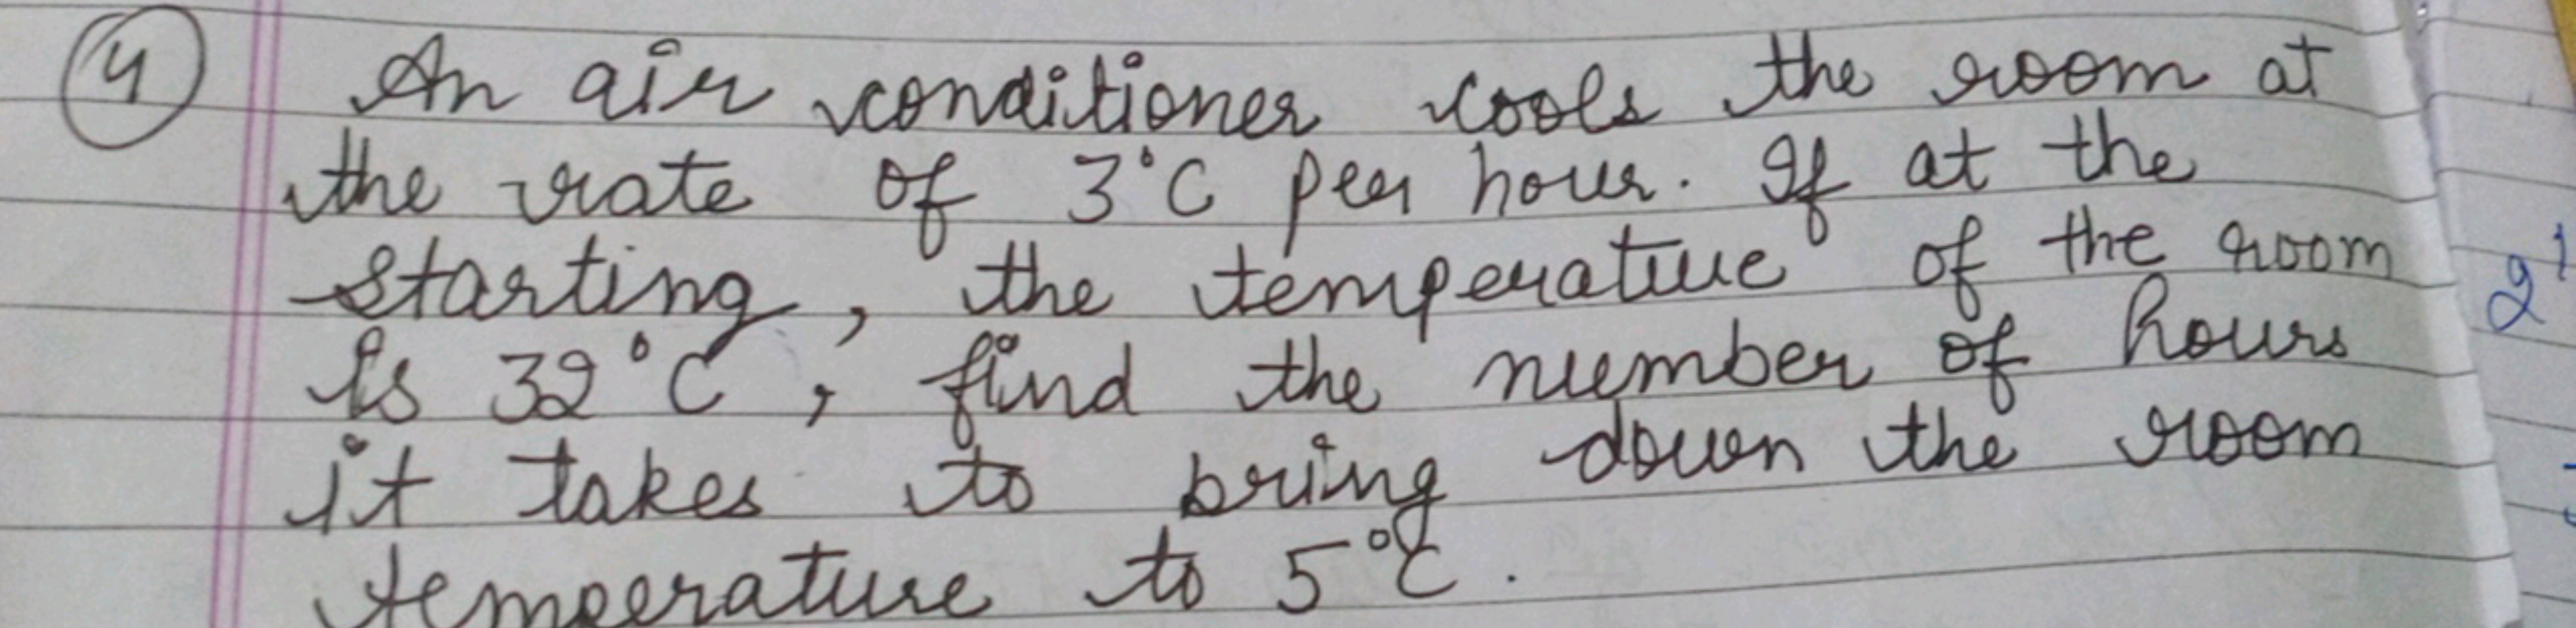 4 An air conditioner cools the room at
the rate of 3°C per hour. If at the
starting, the temperature of the room
is 32°C, find the number of hours
it takes to bring down the room
temperature to 5°C.